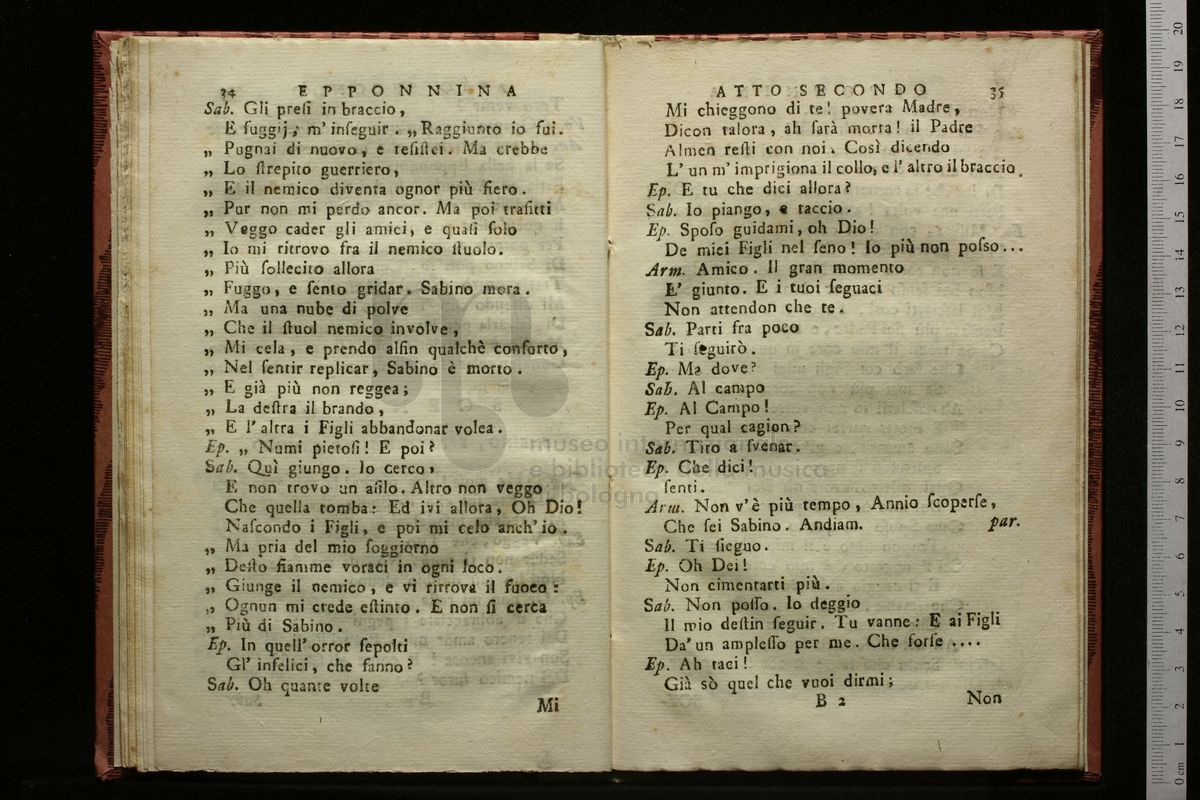 34 EPPONNINA
Sab. Gli presi in braccio,
E fuggij; m' inseguir. „ Raggiunto io fui.
„ Pugnai di nuovo, e resistei. Ma crebbe
„ Lo strepito guerriero,
„ E il nemico diventa ognor più fiero.
„ Pur non mi perdo ancor. Ma poi trafitti
„ Veggo cader gli amici, e quasi solo
„ Io mi ritrovo fra il nemico stuolo.
„ Più sollecito allora
„ Fuggo, e sento gridar. Sabino mora.
„ Ma una nube di polve
„ Che il stuol nemico involve,
„ Mi cela, e prendo alfin qualchè conforto,
„ Nel sentir replicar, Sabino è morto.
„ E già più non reggea;
„ La destra il brando,
„ E l' altra i Figli abbandonar volea.
Ep. „ Numi pietosi! E poi?
Sab. Quì giungo. Io cerco,
E non trovo un asilo. Altro non veggo
Che quella tomba: Ed ivi allora, Oh Dio!
Nascondo i Figli, e poi mi celo anch' io.
„ Ma pria del mio soggiorno
„ Desto fiamme voraci in ogni loco.
„ Giunge il nemico, e vi ritrova il fuoco:
„ Ognun mi crede estinto. E non si cerca
„ Più di Sabino.
Ep. In quell' orror sepolti
Gl' infelici, che fanno?
Sab. Oh quante volte
Mi
ATTO SECONDO 35
Mi chieggono di te! povera Madre,
Dicon talora, ah sarà morta! il Padre
Almen resti con noi. Così dicendo
L' un m' imprigiona il collo, e l' altro il braccio.
Ep. E tu che dici allora?
Sab. Io piango, e taccio.
Ep. Sposo guidami, oh Dio!
De miei Figli nel seno! Io più non posso...
Arm. Amico. Il gran momento
E' giunto. E i tuoi seguaci
Non attendon che te.
Sab. Parti fra poco
Ti seguirò.
Ep. Ma dove?
Sab. Al campo
Ep. Al Campo!
Per qual cagion?
Sab. Tito a svenar.
Ep. Che dici!
senti.
Arm. Non v' è più tempo, Annio scoperse,
Che sei Sabino. Andiam. par.
Sab. Ti sieguo.
Ep. Oh Dei!
Non cimentarti più.
Sab. Non posso. Io deggio
Il mio destin seguir. Tu vanne: E ai Figli
Da' un amplesso per me. Che forse ....
Ep. Ah taci!
Già sò quel che vuoi dirmi;
B 2 Non
museo internazionale
e biblioteca della musica
di bologna